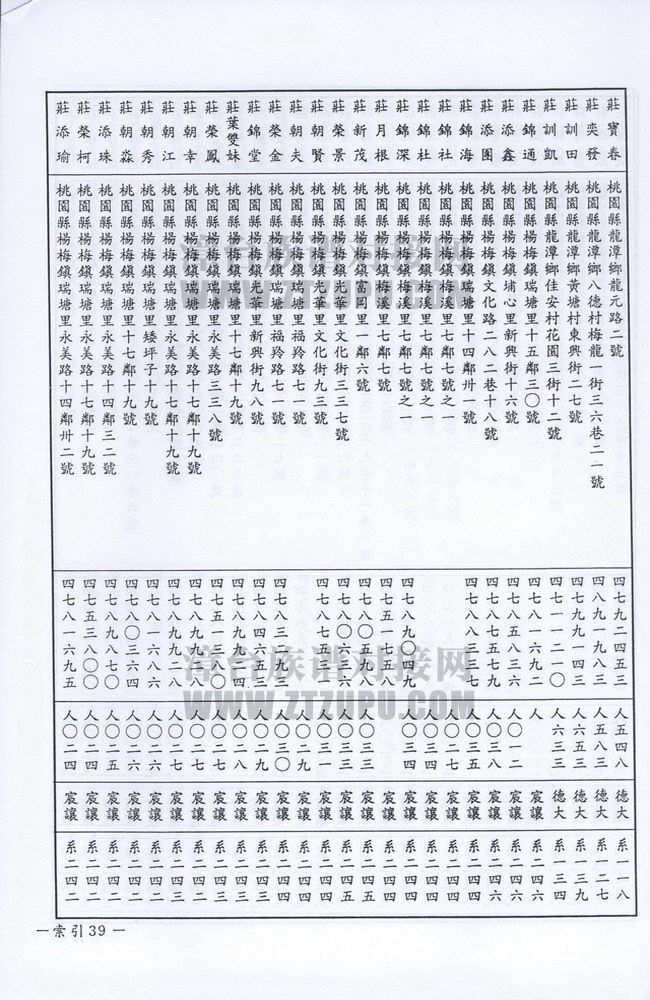 莊寶春 桃園縣龍潭鄉龍元路二號 四七九二四五三 人五四八 德大 系一一八
莊奕發 桃園縣龍潭鄉八德村梅龍一街三六巷二一號 四八九一九八三 人五八三 德大 系一二七
莊訓田 桃園縣龍潭鄉黃塘村東興街二七號 四七九九一四三 人六五三 德大 系一三
莊訓凱 桃園縣龍潭鄉佳安村花園三街十二號 四七一一二一〇 人六三三 德大 系一三四
莊錦通 桃園縣楊梅鎮瑞塘里十五鄰三〇號 四七八一六九二 人 宸讓 系二四六
莊添鑫 桃園縣楊梅鎮埔心里新興街十六號 四七八五八三六 人〇一二 宸讓 系二四六
莊添團 桃園縣楊梅鎮文化路二八二巷十八號 四七八七五七九 人〇三八 宸讓 系二四六
莊錦海 桃園縣楊梅鎮瑞塘里十四鄰卅一號 四七八八三二七 人〇三五 宸讓 系二四四
莊錦社 桃園縣楊梅鎮梅溪里七鄰七號之一 人〇二七 宸讓 系二四四
莊錦杜 桃園縣楊梅鎮梅溪里七鄰七號之一 人〇三四 宸讓 系二四四
莊錦深 桃園縣楊梅鎮梅溪里七鄰七號之一 四七八九〇四九 宸讓 系二四四
莊月根 桃園縣楊梅鎮梅溪里七鄰七號 宸讓 系二四五
莊新茂 桃園縣楊梅鎮富岡里一鄰六號 人〇三三 宸讓 系二四五
莊榮景 桃園縣楊梅鎮光華里文化街三三七號 四七八〇六三六 人〇三三 宸讓 系二四四
莊朝賢 桃園縣楊梅鎮光華里文化街九三號 人〇三一 宸讓 系二四四
莊朝夫 桃園縣楊梅鎮瑞塘里福羚路七一號 人〇二九 宸讓 系二四四
莊榮金 桃園縣楊梅鎮瑞塘里福羚路七一號 四七八三二九三 人〇三〇 宸讓 系二四四
莊錦堂 桃園縣楊梅鎮光華里新興街九八號 四七八四六五三 人〇二九 宸讓 系二四三
莊葉雙妹 桃園縣楊梅鎮瑞塘里十七鄰十九號 人〇二八 宸讓 系二四三
莊榮鳳 桃園縣楊梅鎮瑞塘里永美路三三八號 四七五一三八〇 人〇二七 宸讓 系二四三
莊朝幸 桃園縣楊梅鎮瑞塘里永美路十七鄰十九號 人〇二七 宸讓 系二四二
莊朝江 桃園縣楊梅鎮瑞塘里永美路十七鄰十九號 四七八九九二八 人〇二七 宸讓 系二四三
莊朝秀 桃園縣楊梅鎮瑞塘里矮坪子十九號 人〇二六 宸讓 系二四二
莊朝淼 桃園縣楊梅鎮瑞塘里十七鄰十九號 四七八〇三六四 人〇二六 宸讓 系二四二
莊添珠 桃園縣楊梅鎮瑞塘里永美路十四鄰三二號 四七八九八七〇 人〇二五 宸讓 系二四二
莊榮柯 桃園縣楊梅鎮瑞塘里永美路十七鄰十九號 四七五三八〇〇 人〇二四 宸讓 系二四二
莊添瑜 桃園縣楊梅鎮瑞塘里永美路十四鄰卅二號 四七八一六九五 人〇二四 宸讓 系二四二
漳台族谱对接网
WWW.ZTZUPU.COM
漳台族谱对接网
WWW.ZTZUPU.COM
—索引39—